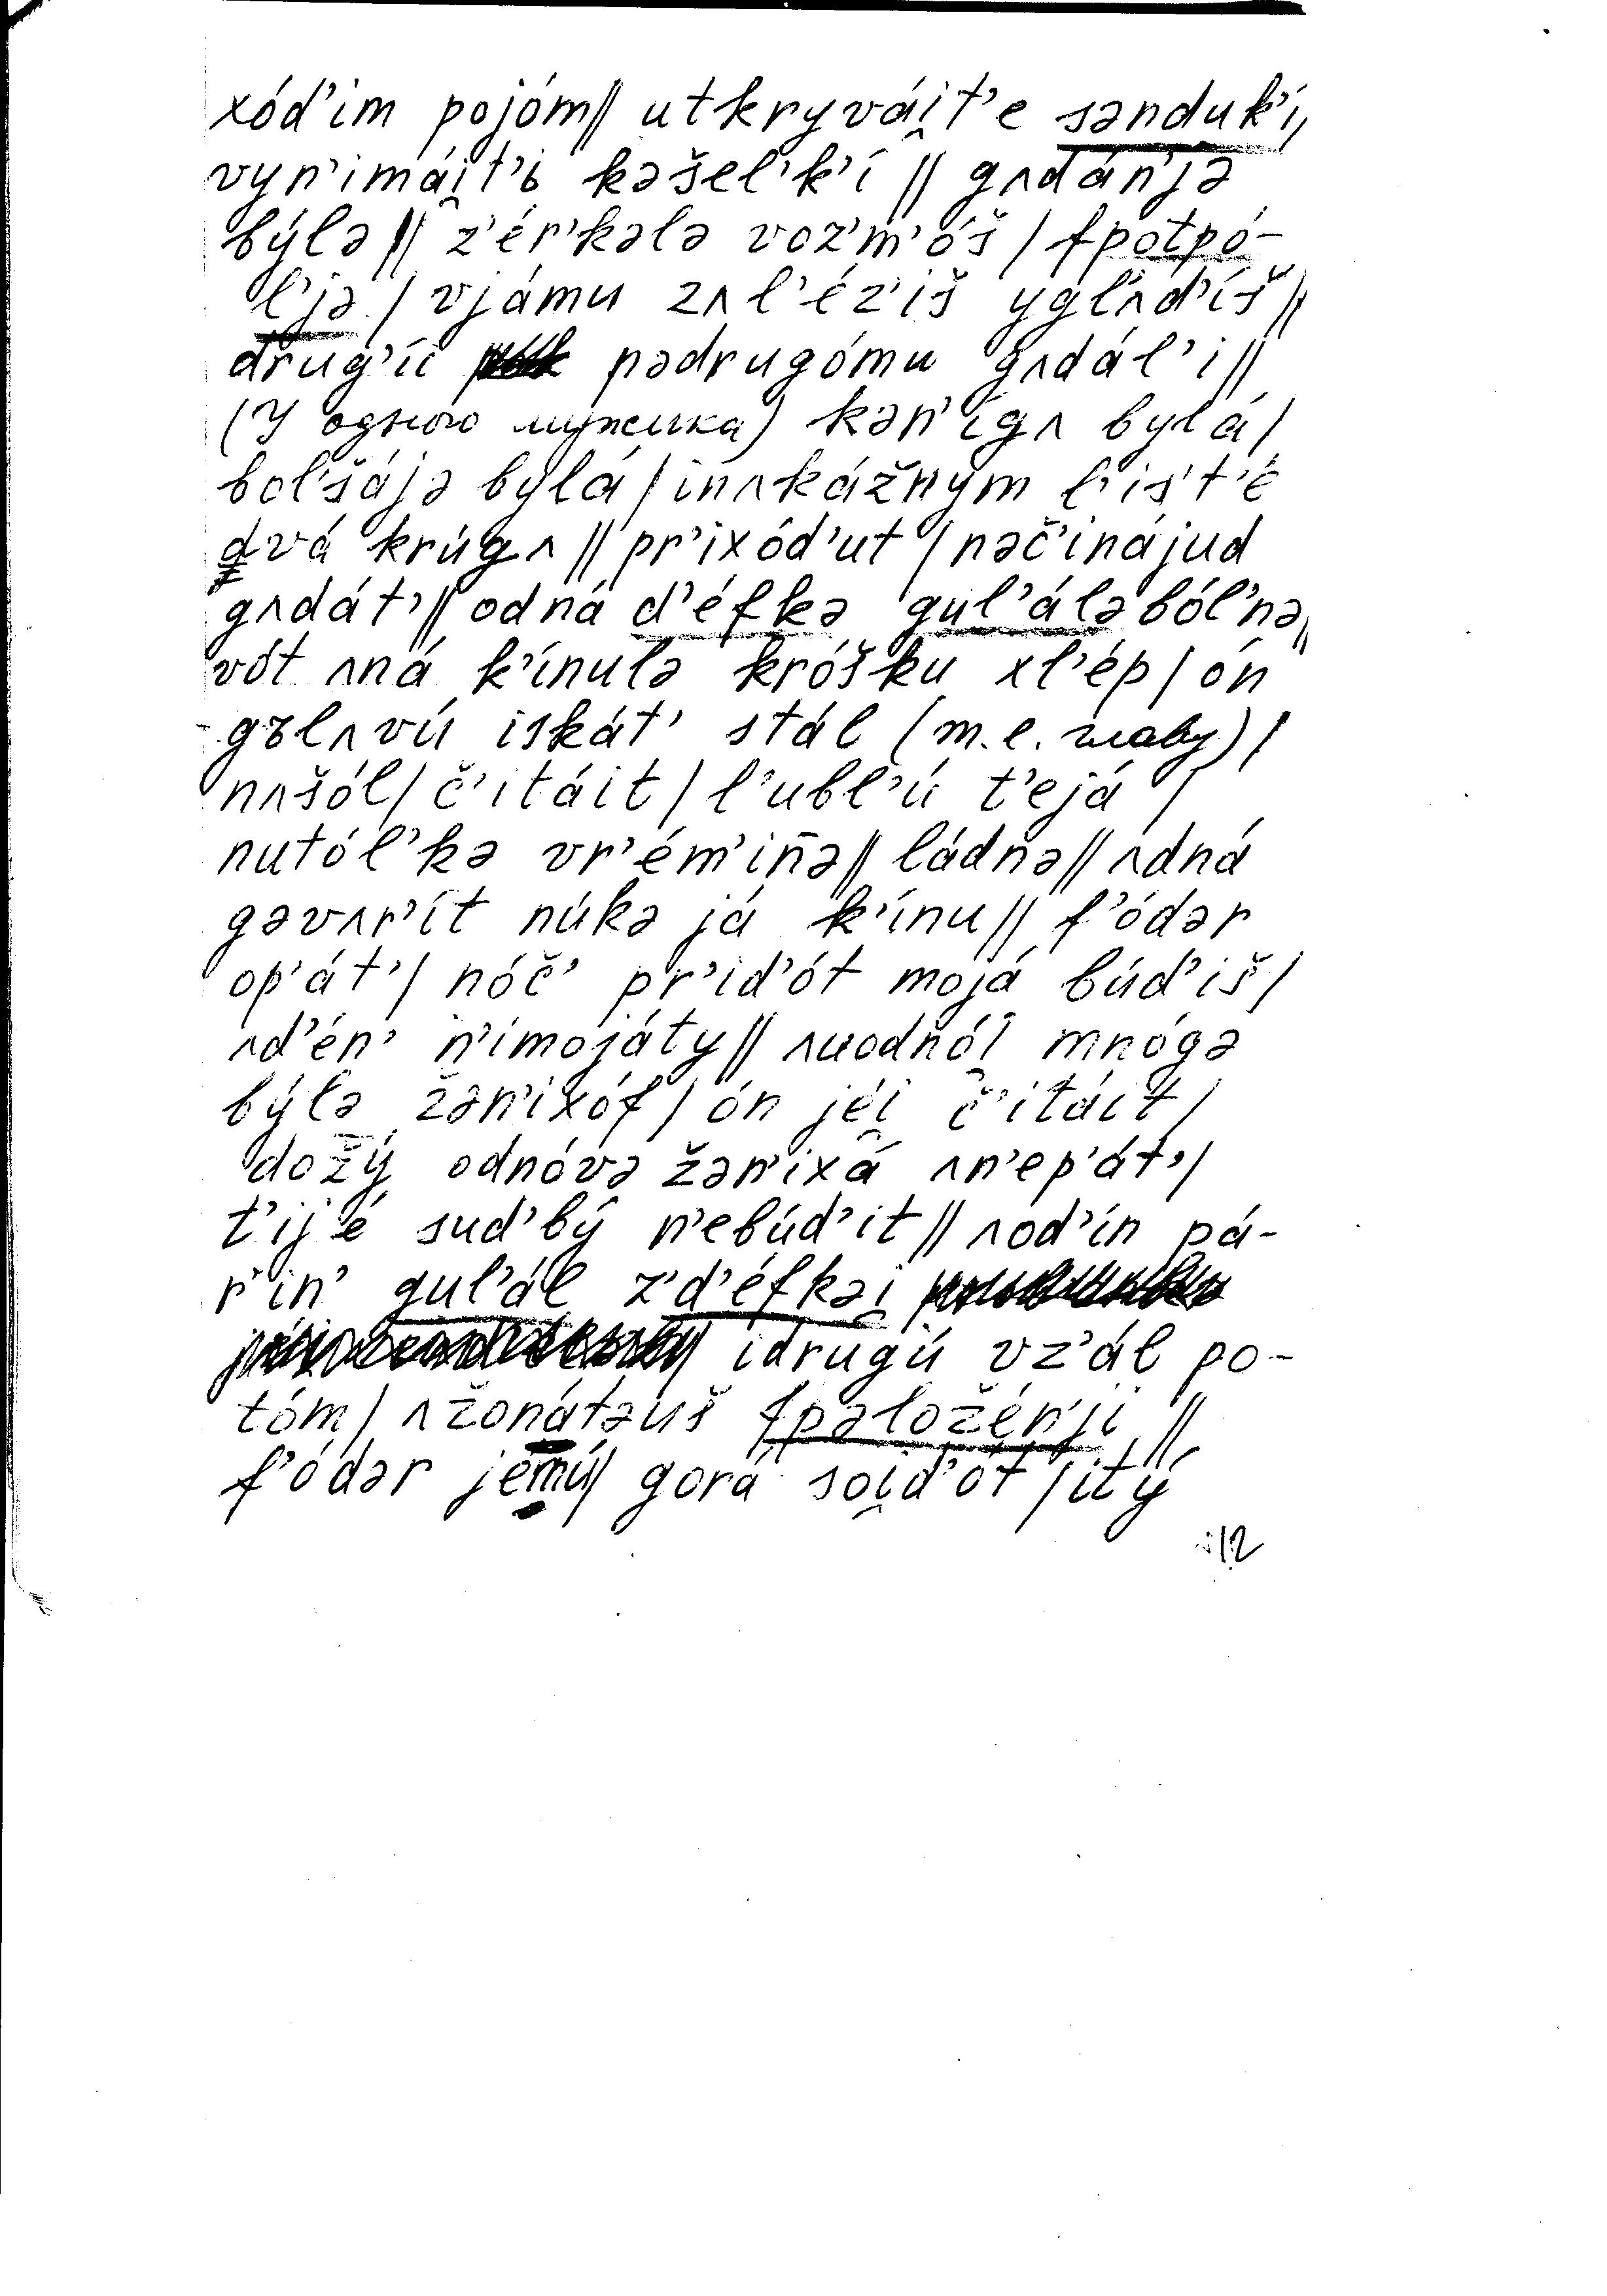 xód’im pojóm// utkryvái̯t’e sənduk’í//
vyn’imái̯t’ь kəšel’k’í // gʌdán’jə
býlə// z’ér’kələ voz’m’óš / fpotpó-
l’jə / vjámu zʌl’éz’iš ygl’ʌd’íš //
drug’íi pədrugómu gʌdál’i //
(У одного мужика) kən’ígʌ bylá /
bol’šájə bylá / inʌkážnym l’is’t’é
dvá krúgʌ // pr’ixód’ut / nəč’inájud
gʌdát’// odná d’éfkə gul’álə ból’nə//
vót ʌná k’ínulə króšku xl’ép / ón
gъlʌvú iskát’ stál (т.е. главу) /
nʌšól / č’itáit / l’ubl’ú t’ejá /
nutól’kə vr’ém’in̄ə // ládnə // ʌdná
gəvʌr’ít núkə já k’ínu // f’ódər
op’át’/ nóč’ pr’id’ót mojá búd’iš /
ʌd’én’ n’imojáty // ʌuodnói̯ mnógə
býlə žən’ixóf / ón jéi̯ č’itáit /
dožý odnóvə žən’ixá ʌn’ep’át’/
t’ijé sud’bý n’ebúd’it // ʌod’ín pá-
r’in’ gul’ál z’d’éfkəi̯
idrugú vz’ál po-
tóm / ʌžonátəuš fpəložén’ji //
f’ódər jemú/ gorá soi̯d’ót / itý
12